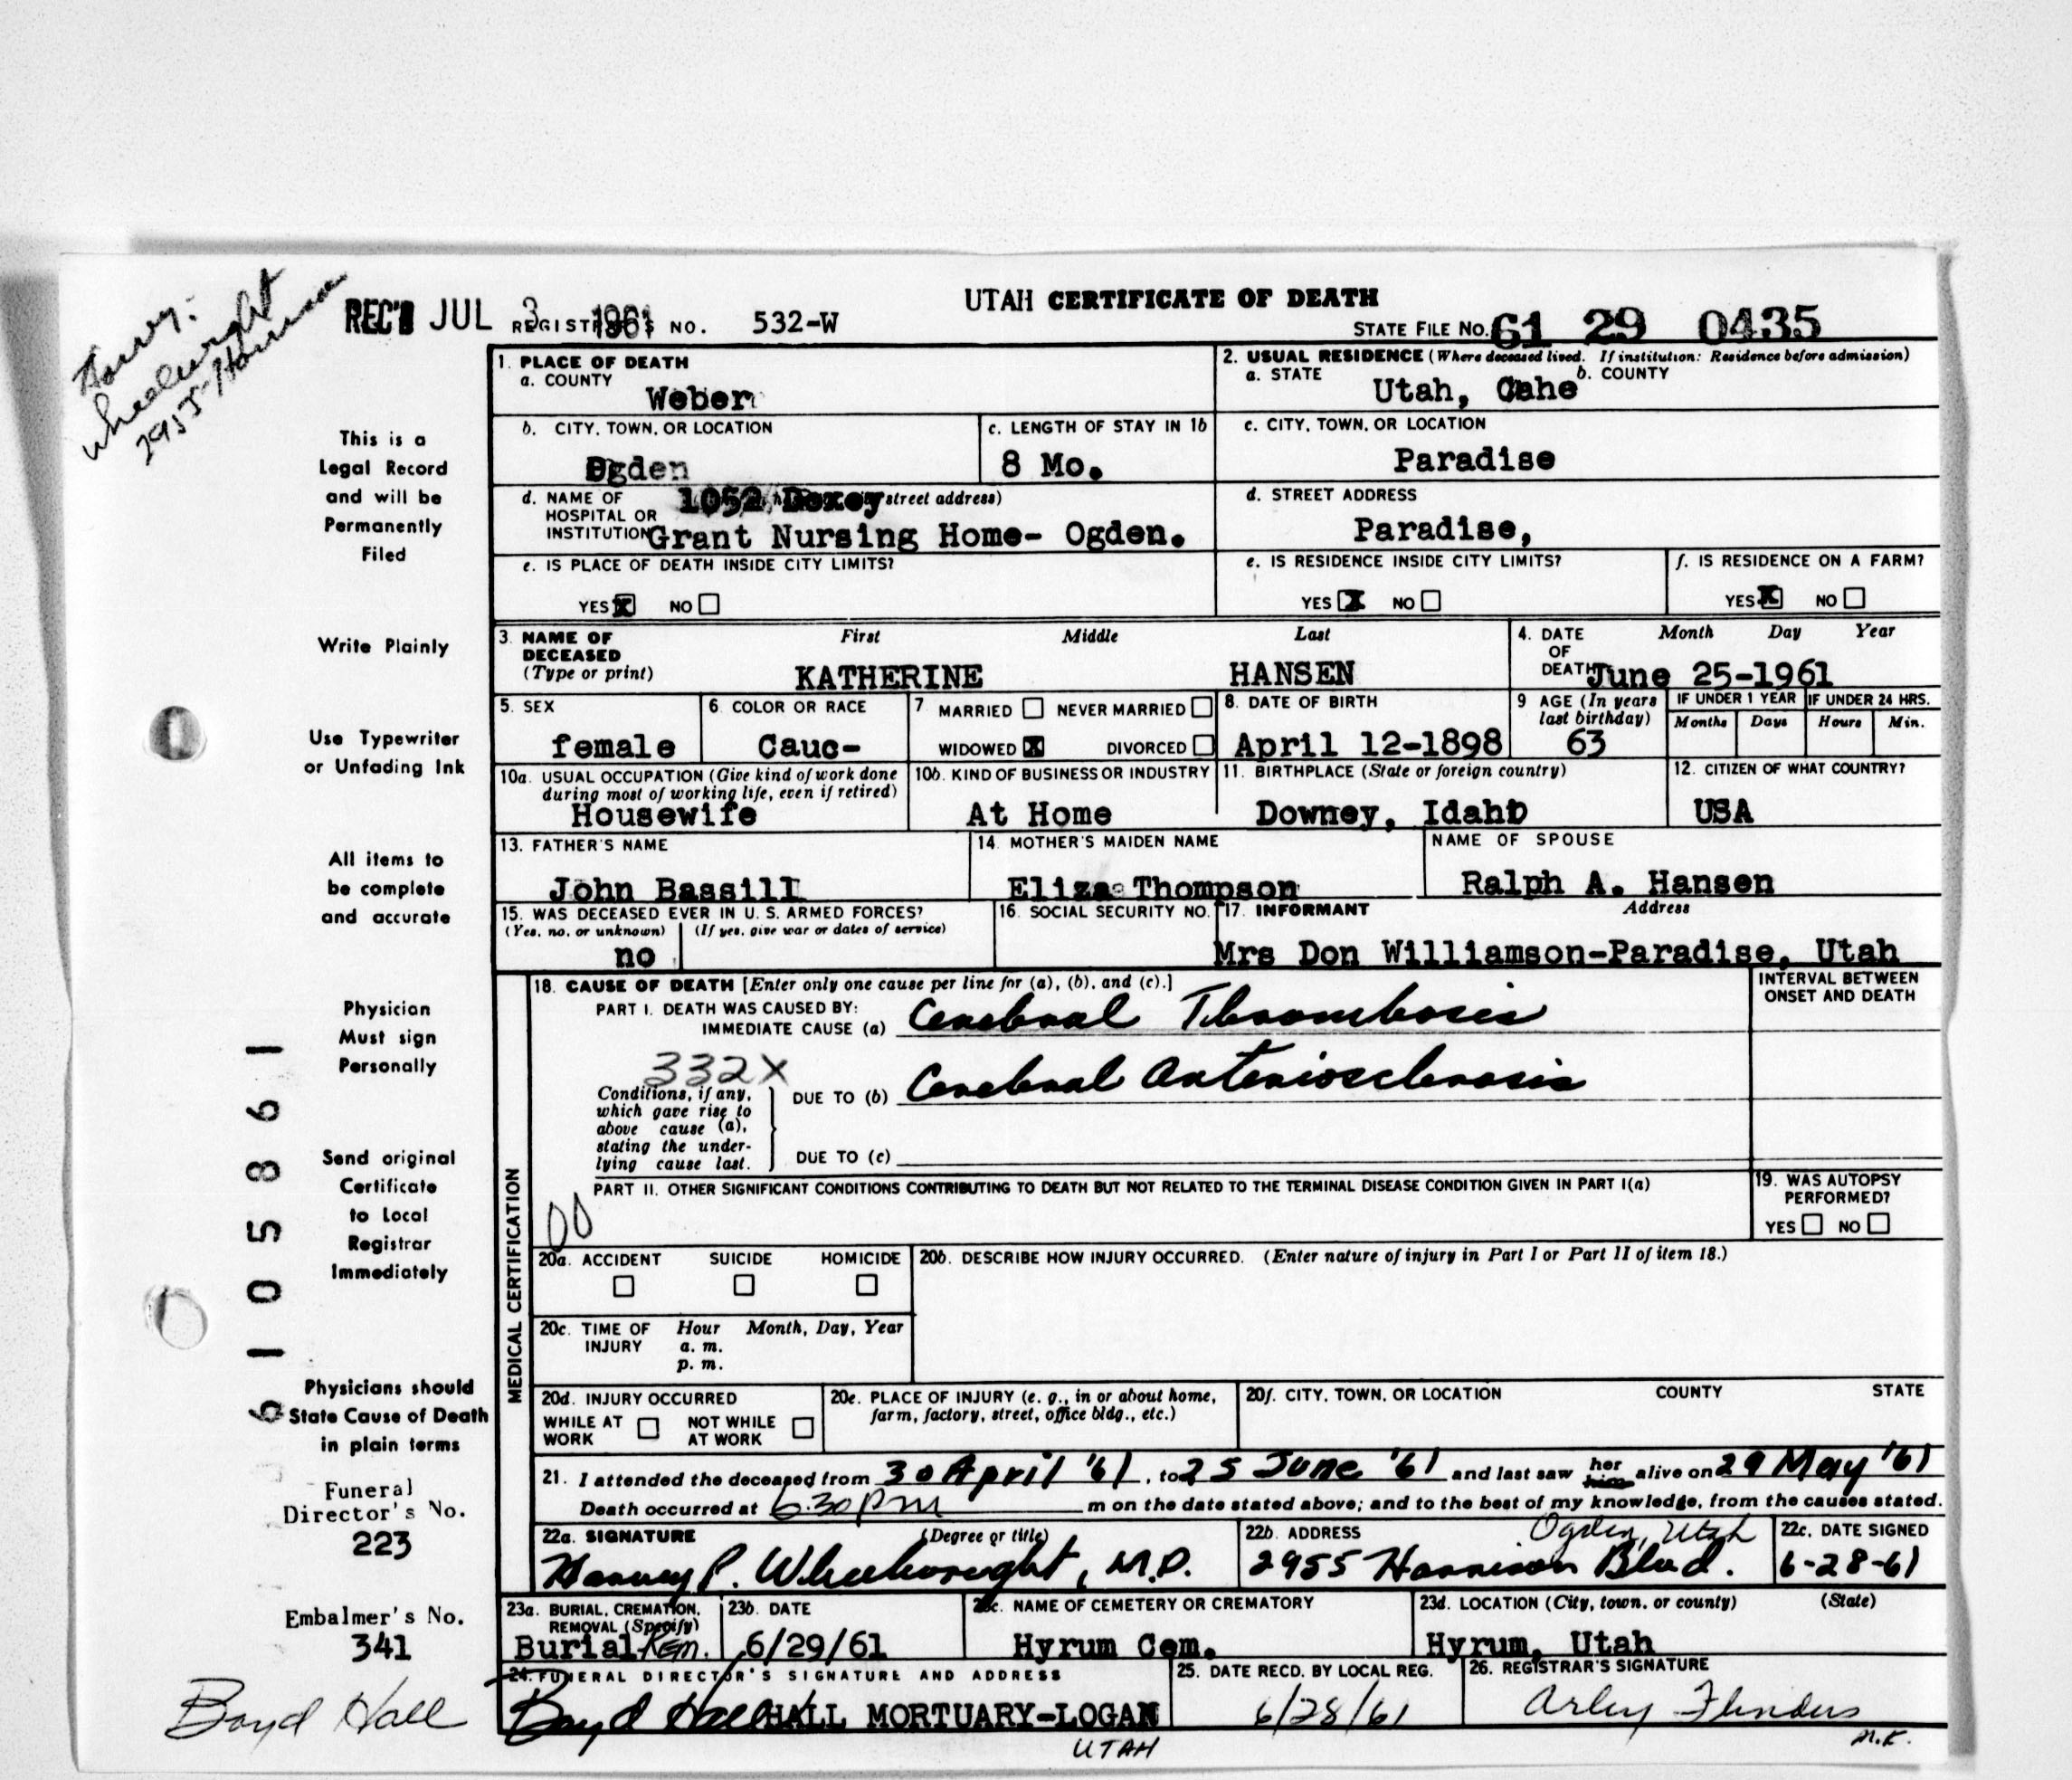 Harvey
Wheelwright
2955 Harrison
UTAH CERTIFICATE OF DEATH
REC'D JUL 3 1961
REGISTRAR'S NO. 532-W
STATE FILE No. 61 29 0435
1. PLACE OF DEATH
a. COUNTY
Weber
2. USUAL RESIDENCE (Where deceased lived. If institution: Residence before admission)
a. STATE b. COUNTY
Utah, Cahe
b. CITY, TOWN, OR LOCATION
Ogden
c. LENGTH OF STAY IN 1b
8 Mo.
c. CITY, TOWN, OR LOCATION
Paradise
d. NAME OF HOSPITAL OR INSTITUTION street address)
1052 Doxey
Grant Nursing Home- Ogden.
d. STREET ADDRESS
Paradise,
e. IS PLACE OF DEATH INSIDE CITY LIMITS?
YES X NO
e. IS RESIDENCE INSIDE CITY LIMITS?
YES X NO
f. IS RESIDENCE ON A FARM?
YES X NO
3. NAME OF DECEASED (Type or print)
First Middle Last
KATHERINE HANSEN
4. DATE OF DEATH
Month Day Year
June 25-1961
5. SEX
female
6. COLOR OR RACE
Cauc-
7 MARRIED NEVER MARRIED
WIDOWED X DIVORCED
8. DATE OF BIRTH
April 12-1898
9 AGE (In years last birthday)
63
IF UNDER 1 YEAR
Months Days
IF UNDER 24 HRS.
Hours Min.
10a. USUAL OCCUPATION (Give kind of work done during most of working life, even if retired)
Housewife
10b. KIND OF BUSINESS OR INDUSTRY
At Home
11. BIRTHPLACE (State or foreign country)
Downey, Idaho
12. CITIZEN OF WHAT COUNTRY?
USA
13. FATHER'S NAME
John Bassill
14. MOTHER'S MAIDEN NAME
Eliza Thompson
NAME OF SPOUSE
Ralph A. Hansen
15. WAS DECEASED EVER IN U. S. ARMED FORCES?
(Yes, no, or unknown) (If yes, give war or dates of service)
no
16. SOCIAL SECURITY NO.
17. INFORMANT Address
Mrs Don Williamson-Paradise, Utah
18. CAUSE OF DEATH [Enter only one cause per line for (a), (b), and (c).]
INTERVAL BETWEEN ONSET AND DEATH
PART I. DEATH WAS CAUSED BY:
IMMEDIATE CAUSE (a) Cerebral Thrombosis
332X
Conditions, if any, which gave rise to above cause (a), stating the underlying cause last.
DUE TO (b) Cerebral Arteriosclerosis
DUE TO (c)
PART II. OTHER SIGNIFICANT CONDITIONS CONTRIBUTING TO DEATH BUT NOT RELATED TO THE TERMINAL DISEASE CONDITION GIVEN IN PART I(a)
00
19. WAS AUTOPSY PERFORMED?
YES NO
20a. ACCIDENT SUICIDE HOMICIDE
20b. DESCRIBE HOW INJURY OCCURRED. (Enter nature of injury in Part I or Part II of item 18.)
20c. TIME OF INJURY
Hour Month, Day, Year
a. m.
p. m.
20d. INJURY OCCURRED
WHILE AT WORK NOT WHILE AT WORK
20e. PLACE OF INJURY (e. g., in or about home, farm, factory, street, office bldg., etc.)
20f. CITY, TOWN, OR LOCATION COUNTY STATE
MEDICAL CERTIFICATION
21. I attended the deceased from 30 April '61, to 25 June '61 and last saw her him alive on 29 May '61
Death occurred at 6:30 pm m on the date stated above; and to the best of my knowledge, from the causes stated.
22a. SIGNATURE (Degree or title)
Harvey P. Wheelwright, M.D.
22b. ADDRESS
Ogden, Utah
2955 Harrison Blvd.
22c. DATE SIGNED
6-28-61
23a. BURIAL, CREMATION, REMOVAL (Specify)
Burial Rem.
23b. DATE
6/29/61
23c. NAME OF CEMETERY OR CREMATORY
Hyrum Cem.
23d. LOCATION (City, town, or county) (State)
Hyrum, Utah
24. FUNERAL DIRECTOR'S SIGNATURE AND ADDRESS
Boyd Hall HALL MORTUARY-LOGAN
UTAH
25. DATE RECD. BY LOCAL REG.
6/28/61
26. REGISTRAR'S SIGNATURE
Arley Flinders
M.K.
This is a
Legal Record
and will be
Permanently
Filed
Write Plainly
Use Typewriter
or Unfading Ink
All items to
be complete
and accurate
Physician
Must sign
Personally
Send original
Certificate
to Local
Registrar
Immediately
Physicians should
State Cause of Death
in plain terms
Funeral
Director's No.
223
Embalmer's No.
341
Boyd Hall
6105861